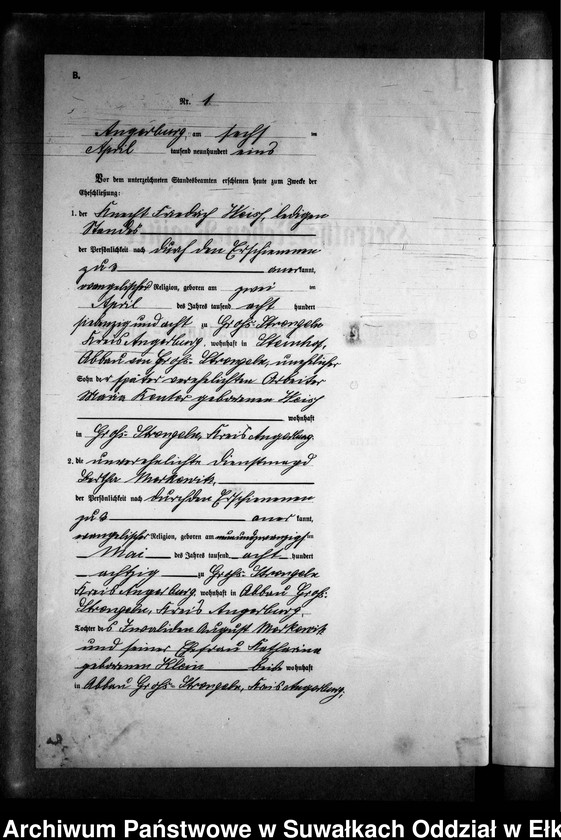 B.
Nr. 1
Angerburg, am sechs ten
April tausend neunhundert eins
Vor dem unterzeichneten Standesbeamten erschienen heute zum Zwecke der
Eheschließung:
1. der Knecht Friedrich ledigen
Standes
der Persönlichkeit nach durch den Erschienenen
zu 2 anerkannt,
evangelischer Religion, geboren am zwei ten
April des Jahres tausend acht hundert
siebenzig und acht zu Groß-Strengeln
Kreis Angerburg, wohnhaft in Steinhof,
Abbau von Groß-Strengeln, unehelicher
Sohn der später verehelichten Arbeiter
Maria geborenen
wohnhaft
in Groß-Strengeln, Kreis Angerburg.
2. die unverehelichte Dienstmagd
Bertha
der Persönlichkeit nach durch den Erschienenen
zu aner kannt,
evangelischer Religion, geboren am neunundzwanzigs ten
Mai des Jahres tausend acht hundert
achtzig zu Groß-Strengeln
Kreis Angerburg, wohnhaft in Abbau Groß-
Strengeln, Kreis Angerburg,
Tochter des Invaliden August
und seiner Ehefrau Katharina
geborenen Klein beide wohnhaft
in Abbau Groß-Strengeln, Kreis Angerburg,
Archiwum Państwowe w Suwałkach Oddział w Ełk